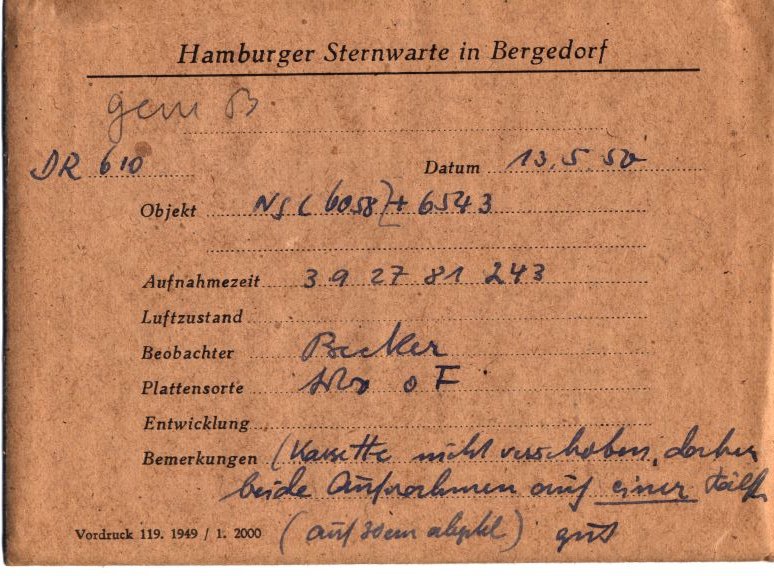 Hamburger Sternwarte in Bergedorf
gem B
DR 610 Datum 13.5.50
Objekt NGC (6058) + 6543
Aufnahmezeit 3 9 27 81 243
Luftzustand
Beobachter Becker
Plattensorte o F
Entwicklung
Bemerkungen (Kassette nicht verschoben, daher
beide Aufnahmen auf einer
Vordruck 119. 1949 / 1. 2000 (auf) gut